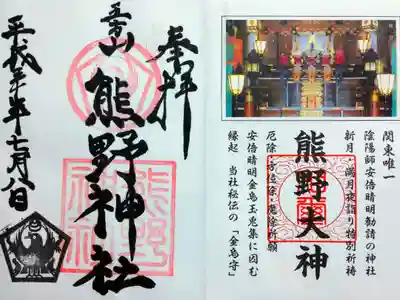 関東唯一
陰陽師安倍晴明勧請の神社
新月・満月夜詣り特別祈祷
熊野大神
厄除・方位除・魔除祈願
安倍晴明金烏玉兎集に因む
縁起 当社秘伝の「金烏守」
奉拝
五方山
熊野神社
熊野神社
平成三十年七月八日